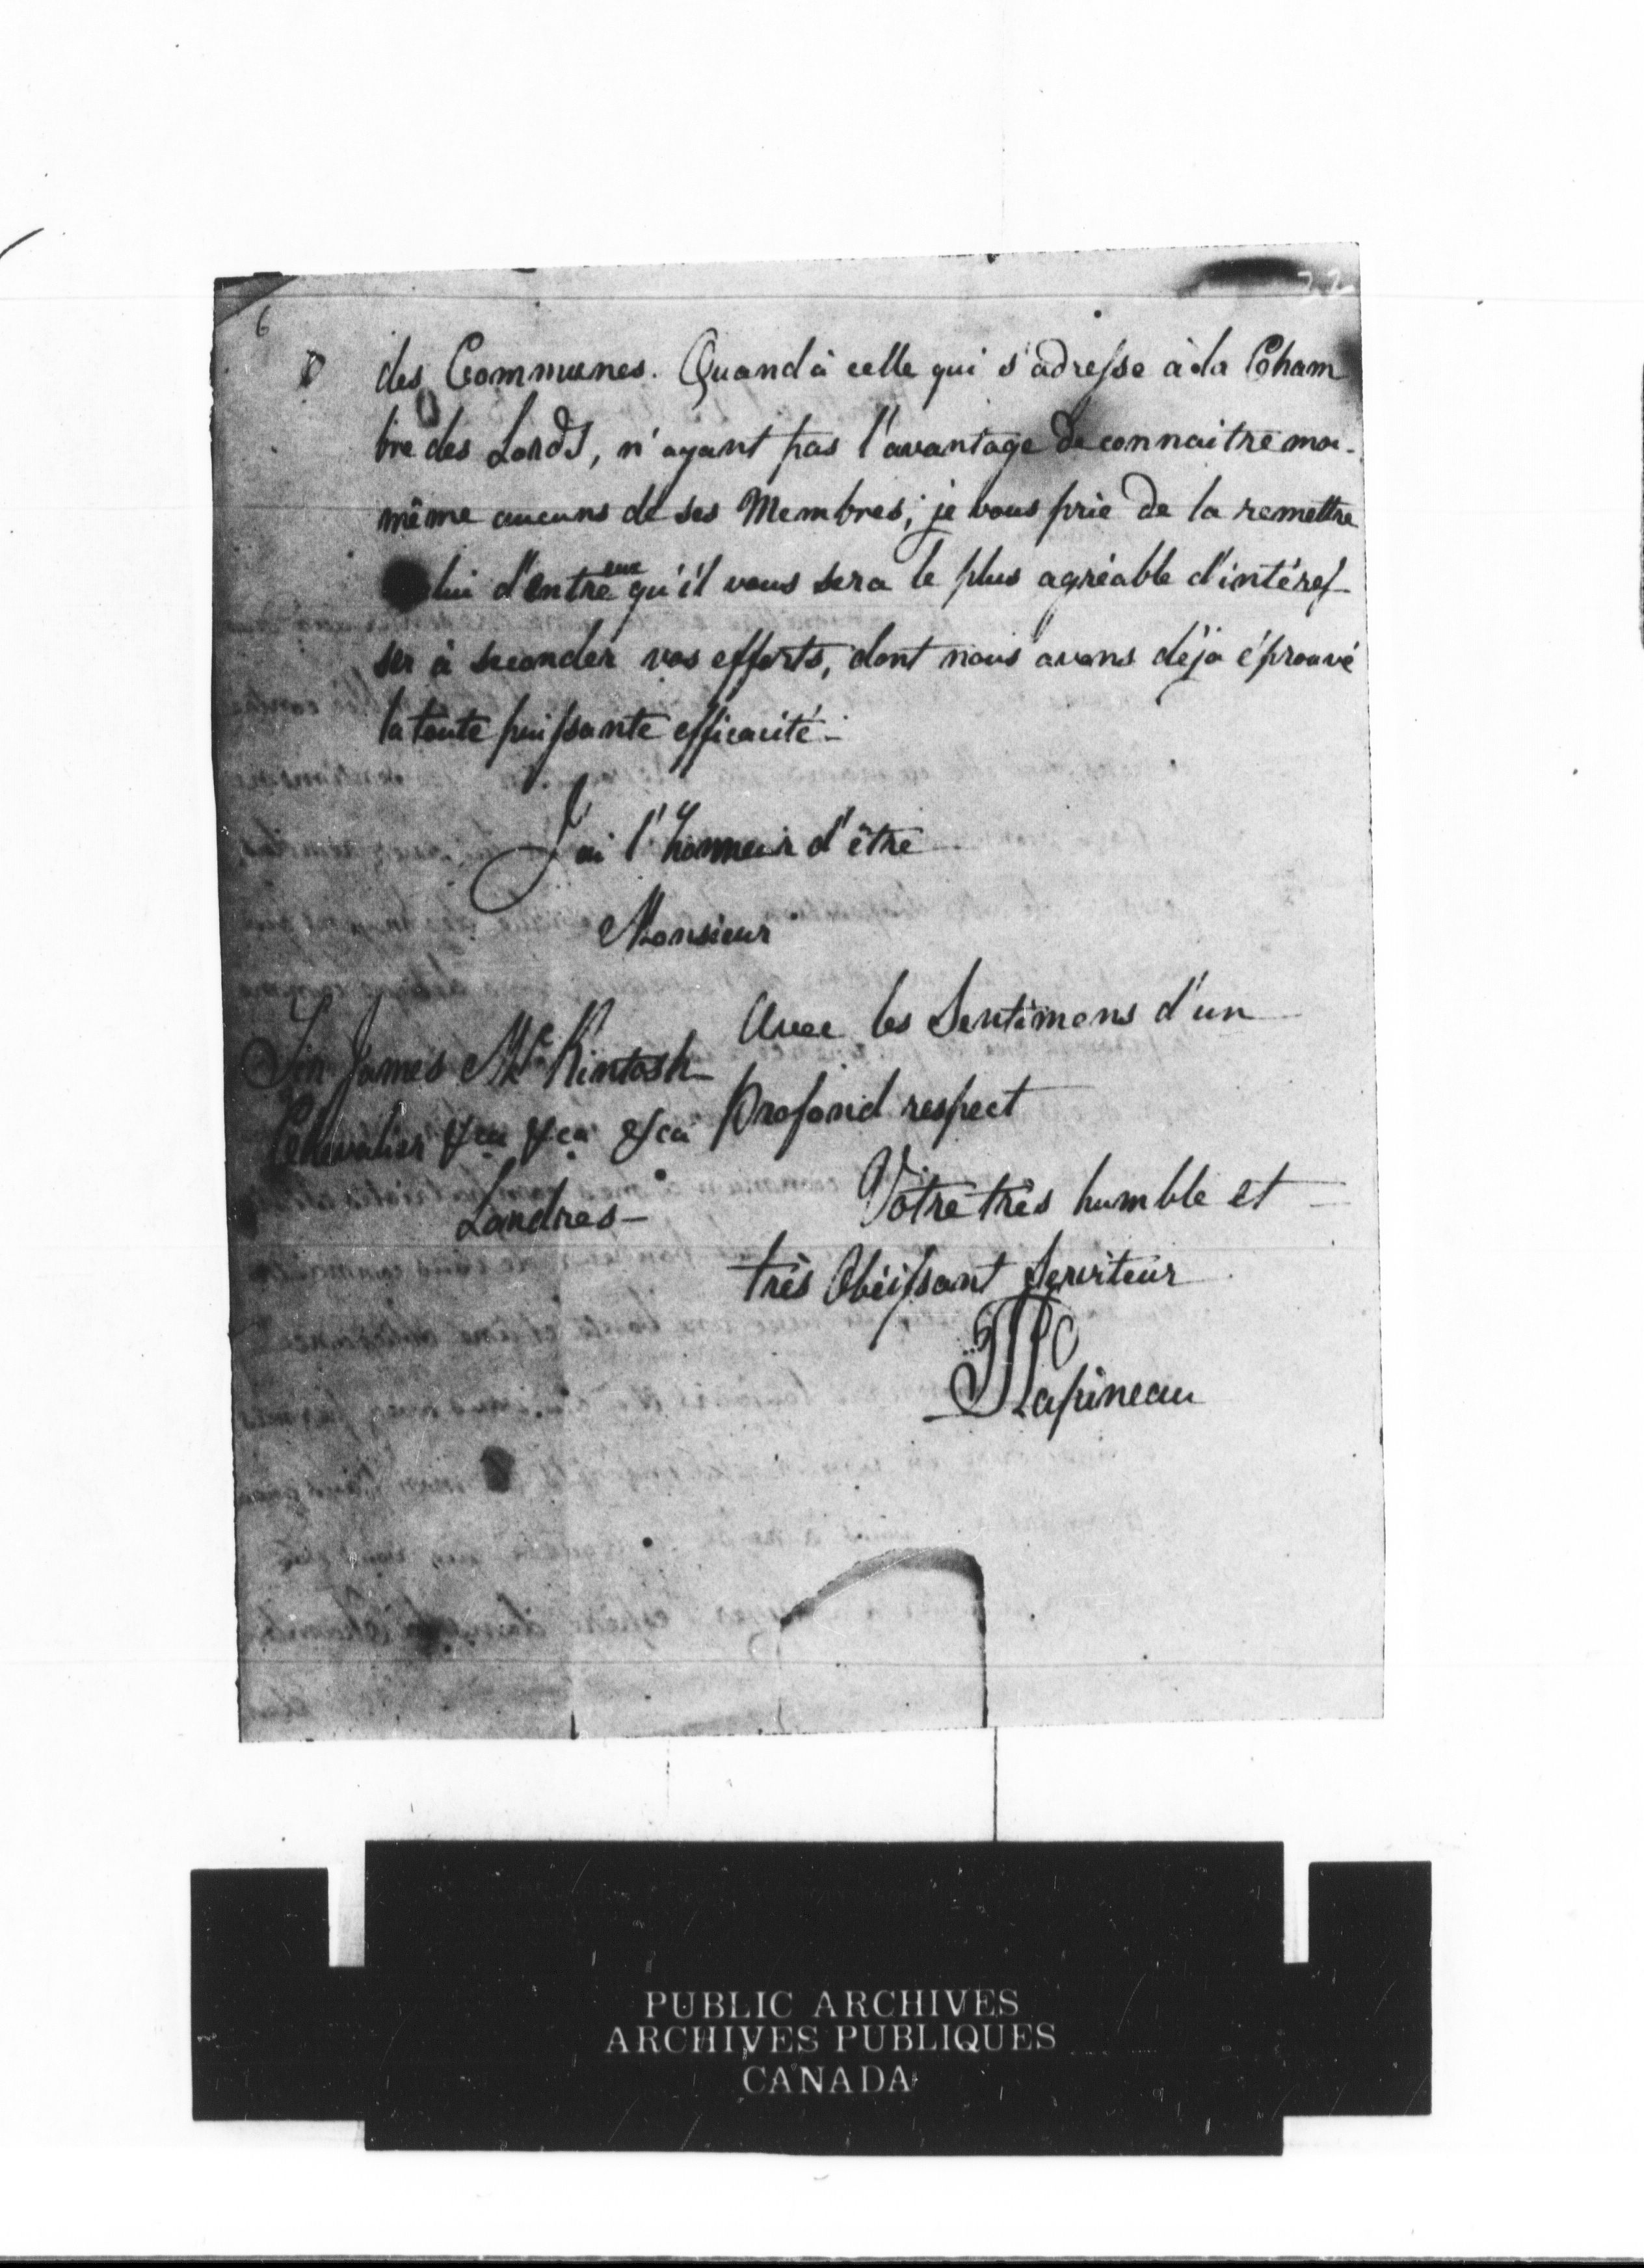 22
6
des Communes. Quand à celle qui s'adresse à la Cham
bre des Lords, n'ayant pas l'avantage de connaitre moi-
même aucuns de ses Membres; je vous prie de la remettre
lui d'entre eux qu'il vous sera le plus agréable d'intéres-
ser à seconder vos efforts, dont nous avons déjà éprouvé
la toute puissante efficacité.-
J'ai l'honneur d'être
Monsieur
Avec les Sentimens d'un
profond respect
Votre très humble et
très Obéissant Serviteur
Papineau
Sir James McKintosh
Chevalier &ca &ca &ca
Londres-
PUBLIC ARCHIVES
ARCHIVES PUBLIQUES
CANADA